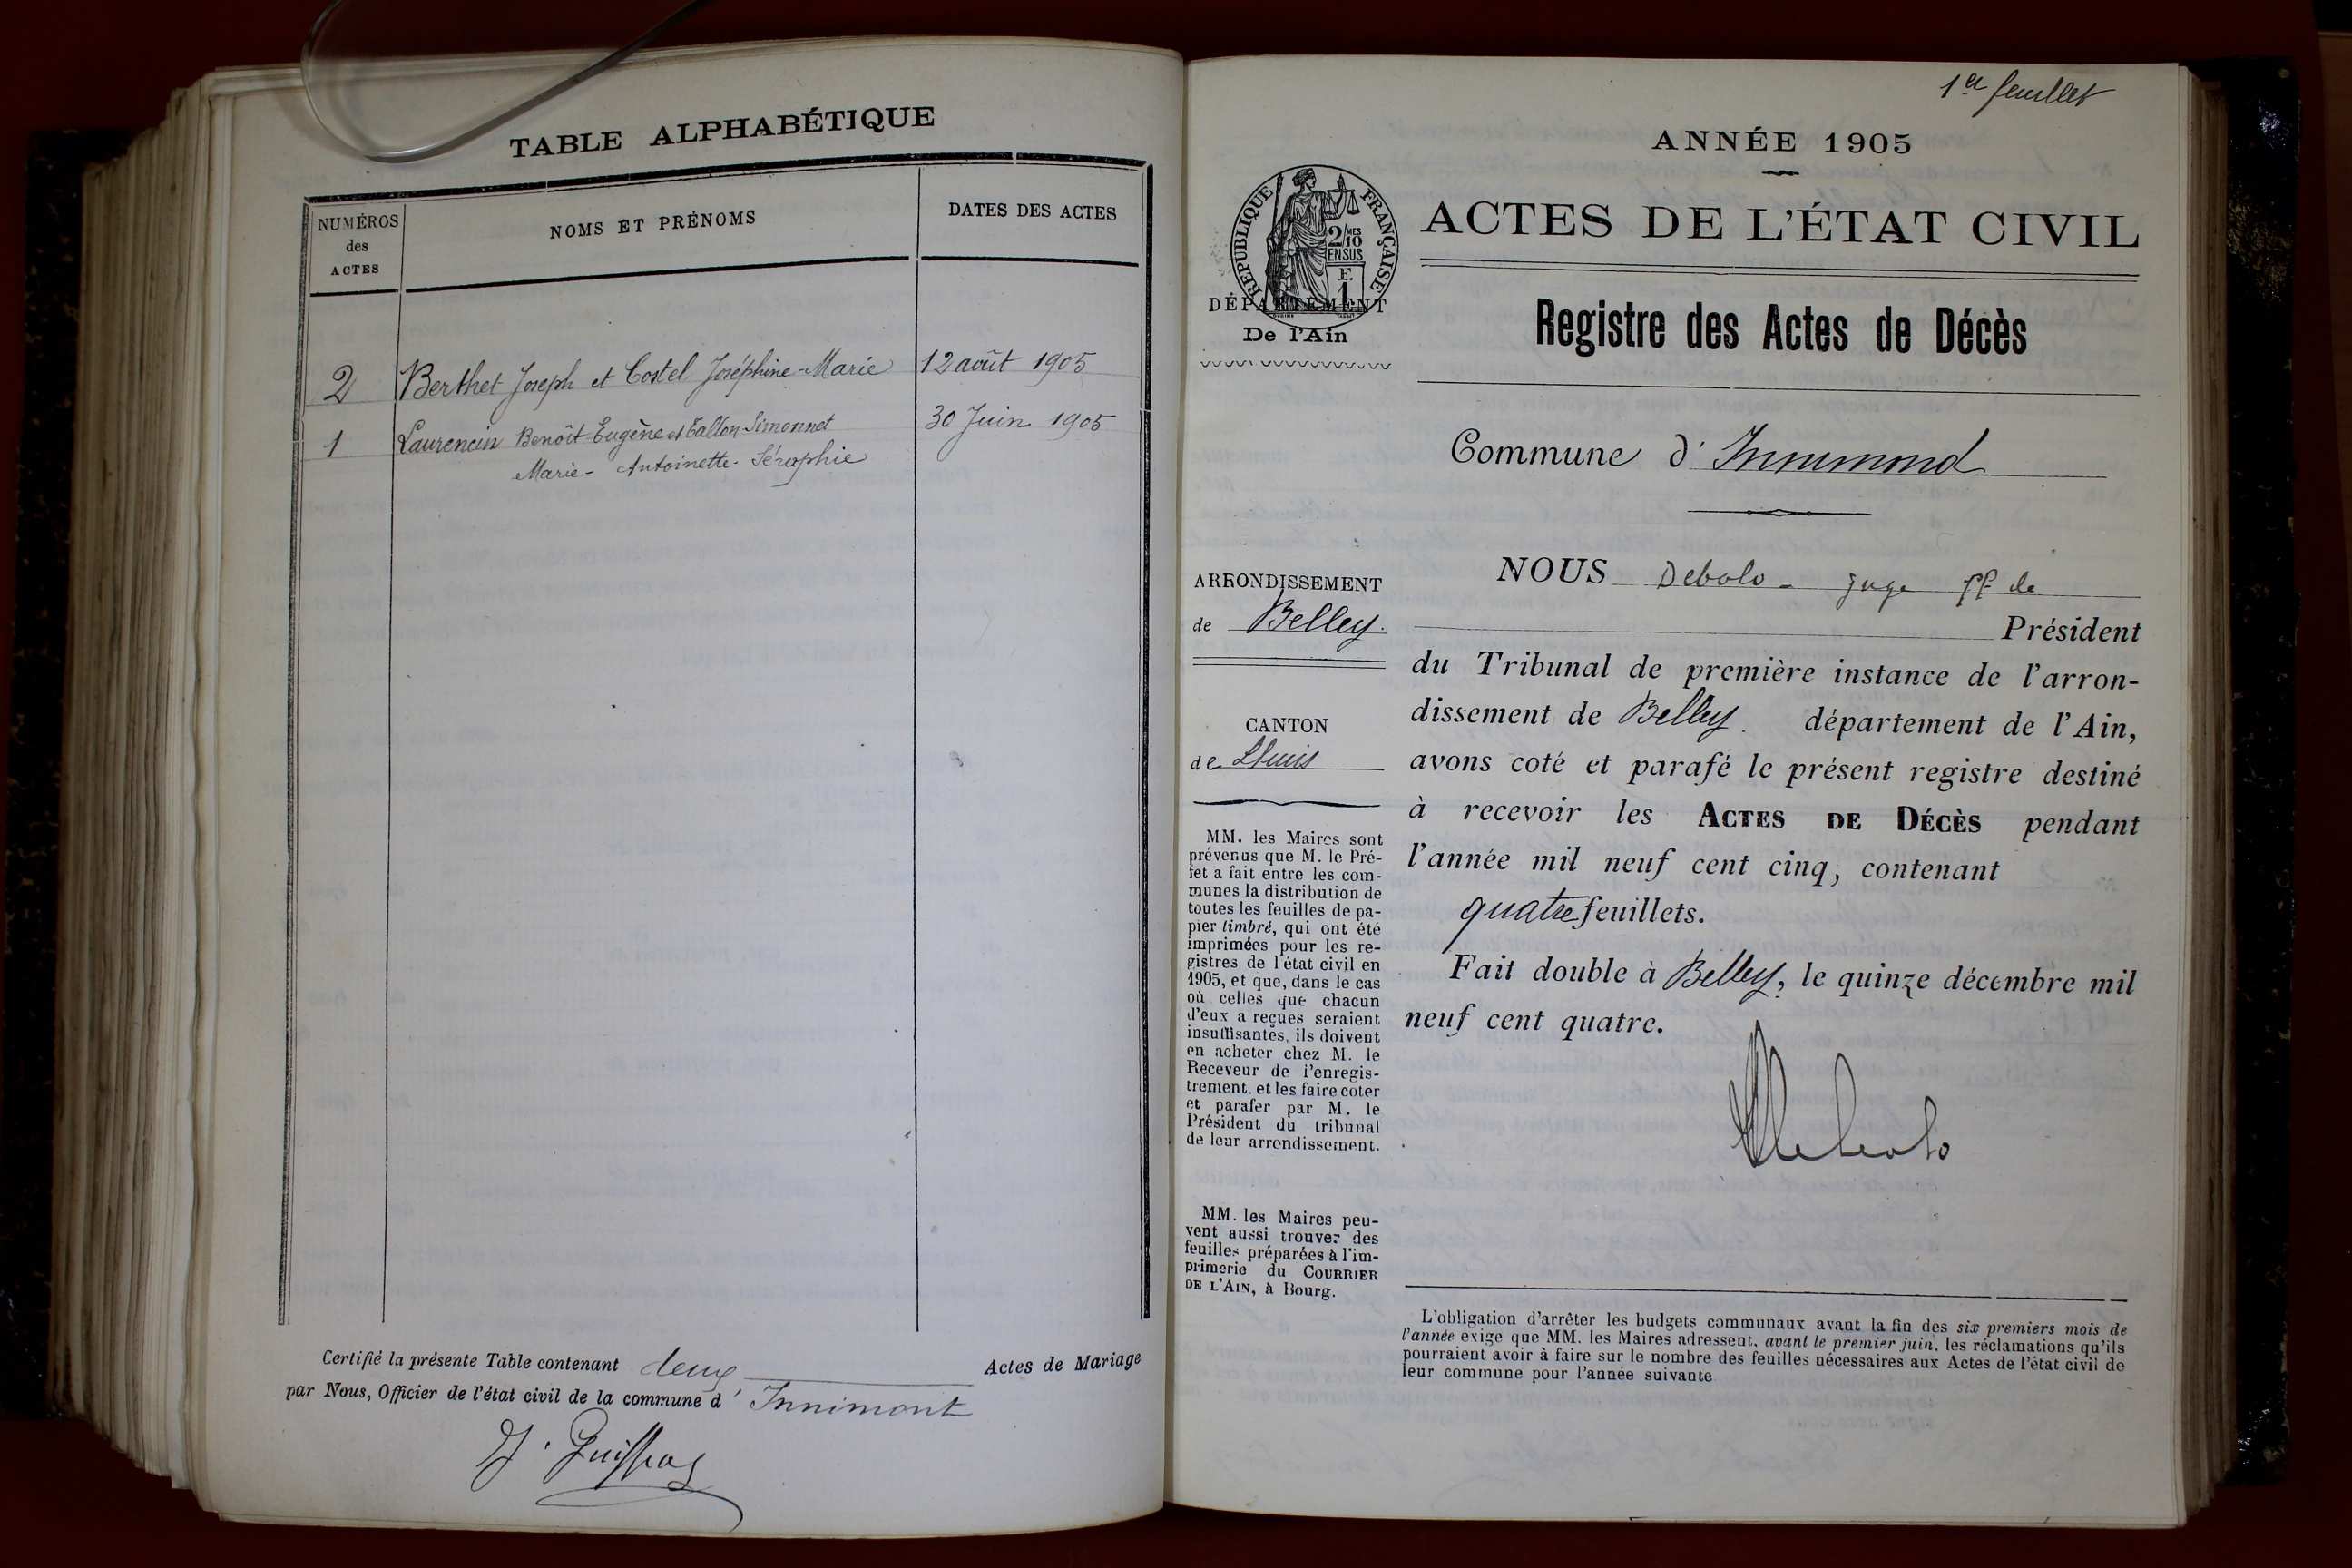 TABLE ALPHABÉTIQUE
NUMÉROS
des
ACTES
NOMS ET PRÉNOMS
DATES DES ACTES
2 Berthet Joseph et Costel Joséphine-Marie 12 août 1905
1 Laurencin Benoît-Eugène et Tallon-Simonnet 30 Juin 1905
Marie-Antoinette-Séraphie
Certifié la présente Table contenant deux Actes de Mariage
par Nous, Officier de l'état civil de la commune d' Innimont
1er feuillet
ANNÉE 1905
RÉPUBLIQUE FRANÇAISE
2/10 MES
EN SUS
F.
1
DÉPARTEMENT
De l'Ain
ACTES DE L'ÉTAT CIVIL
Registre des Actes de Décès
Commune d' Innimond
ARRONDISSEMENT
de Belley.
CANTON
de Lhuis
MM. les Maires sont
prévenus que M. le Pré-
fet a fait entre les com-
munes la distribution de
toutes les feuilles de pa-
pier timbré, qui ont été
imprimées pour les re-
gistres de l'état civil en
1905, et que, dans le cas
où celles que chacun
d'eux a reçues seraient
insuffisantes, ils doivent
en acheter chez M. le
Receveur de l'enregis-
trement, et les faire coter
et parafer par M. le
Président du tribunal
de leur arrondissement.
MM. les Maires peu-
vent aussi trouver des
feuilles préparées à l'im-
primerie du COURRIER
DE L'AIN, à Bourg.
NOUS Debolo - Juge ff de
Président
du Tribunal de première instance de l'arron-
dissement de Belley. département de l'Ain,
avons coté et parafé le présent registre destiné
à recevoir les ACTES DE DÉCÈS pendant
l'année mil neuf cent cinq, contenant
quatre feuillets.
Fait double à Belley, le quinze décembre mil
neuf cent quatre.
Debolo
L'obligation d'arrêter les budgets communaux avant la fin des six premiers mois de
l'année exige que MM. les Maires adressent, avant le premier juin, les réclamations qu'ils
pourraient avoir à faire sur le nombre des feuilles nécessaires aux Actes de l'état civil de
leur commune pour l'année suivante